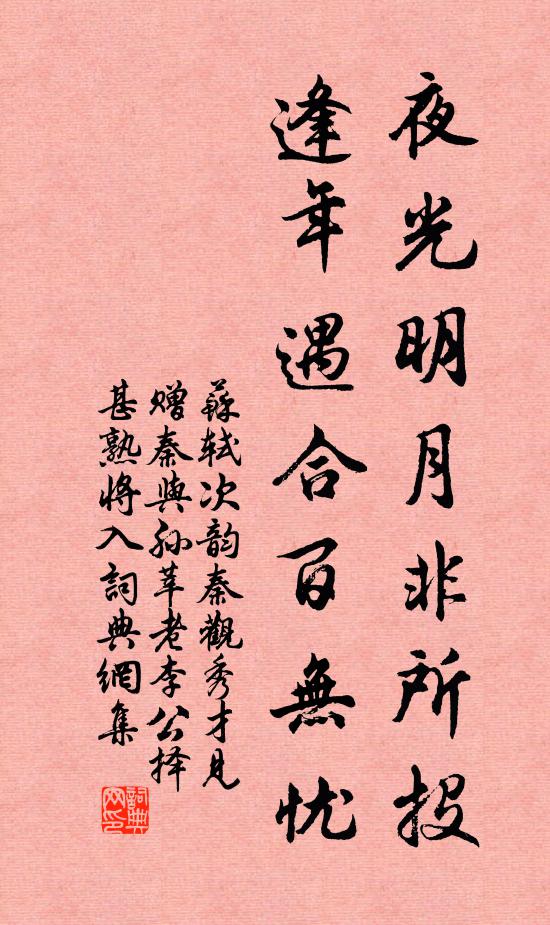 夜光明月非所投
逢年遇合百無忧
蘇轼次韵秦觀秀才見
赠秦與孙莘老李公择
甚熟将入詞典網集
詞典
网印